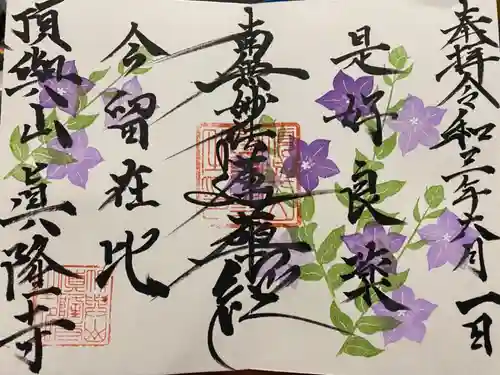 奉拝 令和三年六月一日
是好良薬
南無妙法蓮華経
今留在此
頂與山 眞隆寺